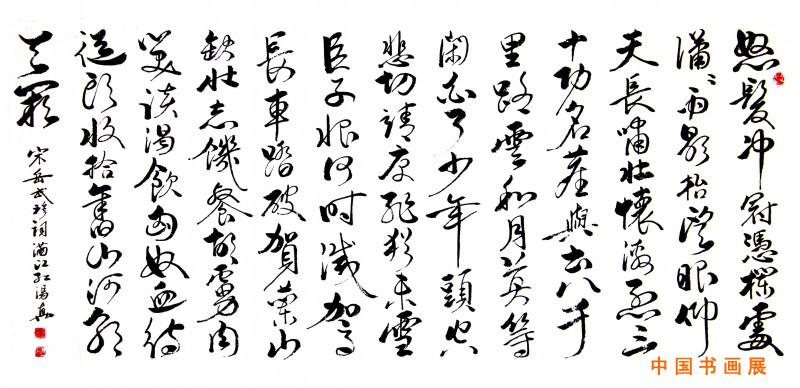 怒髮冲冠憑欄處
瀟瀟雨歇抬望眼仰
天長嘯壯懷激烈三
十功名塵與土八千
里路雲和月莫等
閑白了少年頭空
悲切靖康耻猶未雪
臣子恨何時滅駕
長車踏破賀蘭山
缺壯志饑餐胡虜肉
笑談渴飲匈奴血待
從頭收拾舊山河朝
天闕
宋岳武穆詞滿江紅
中国书画展